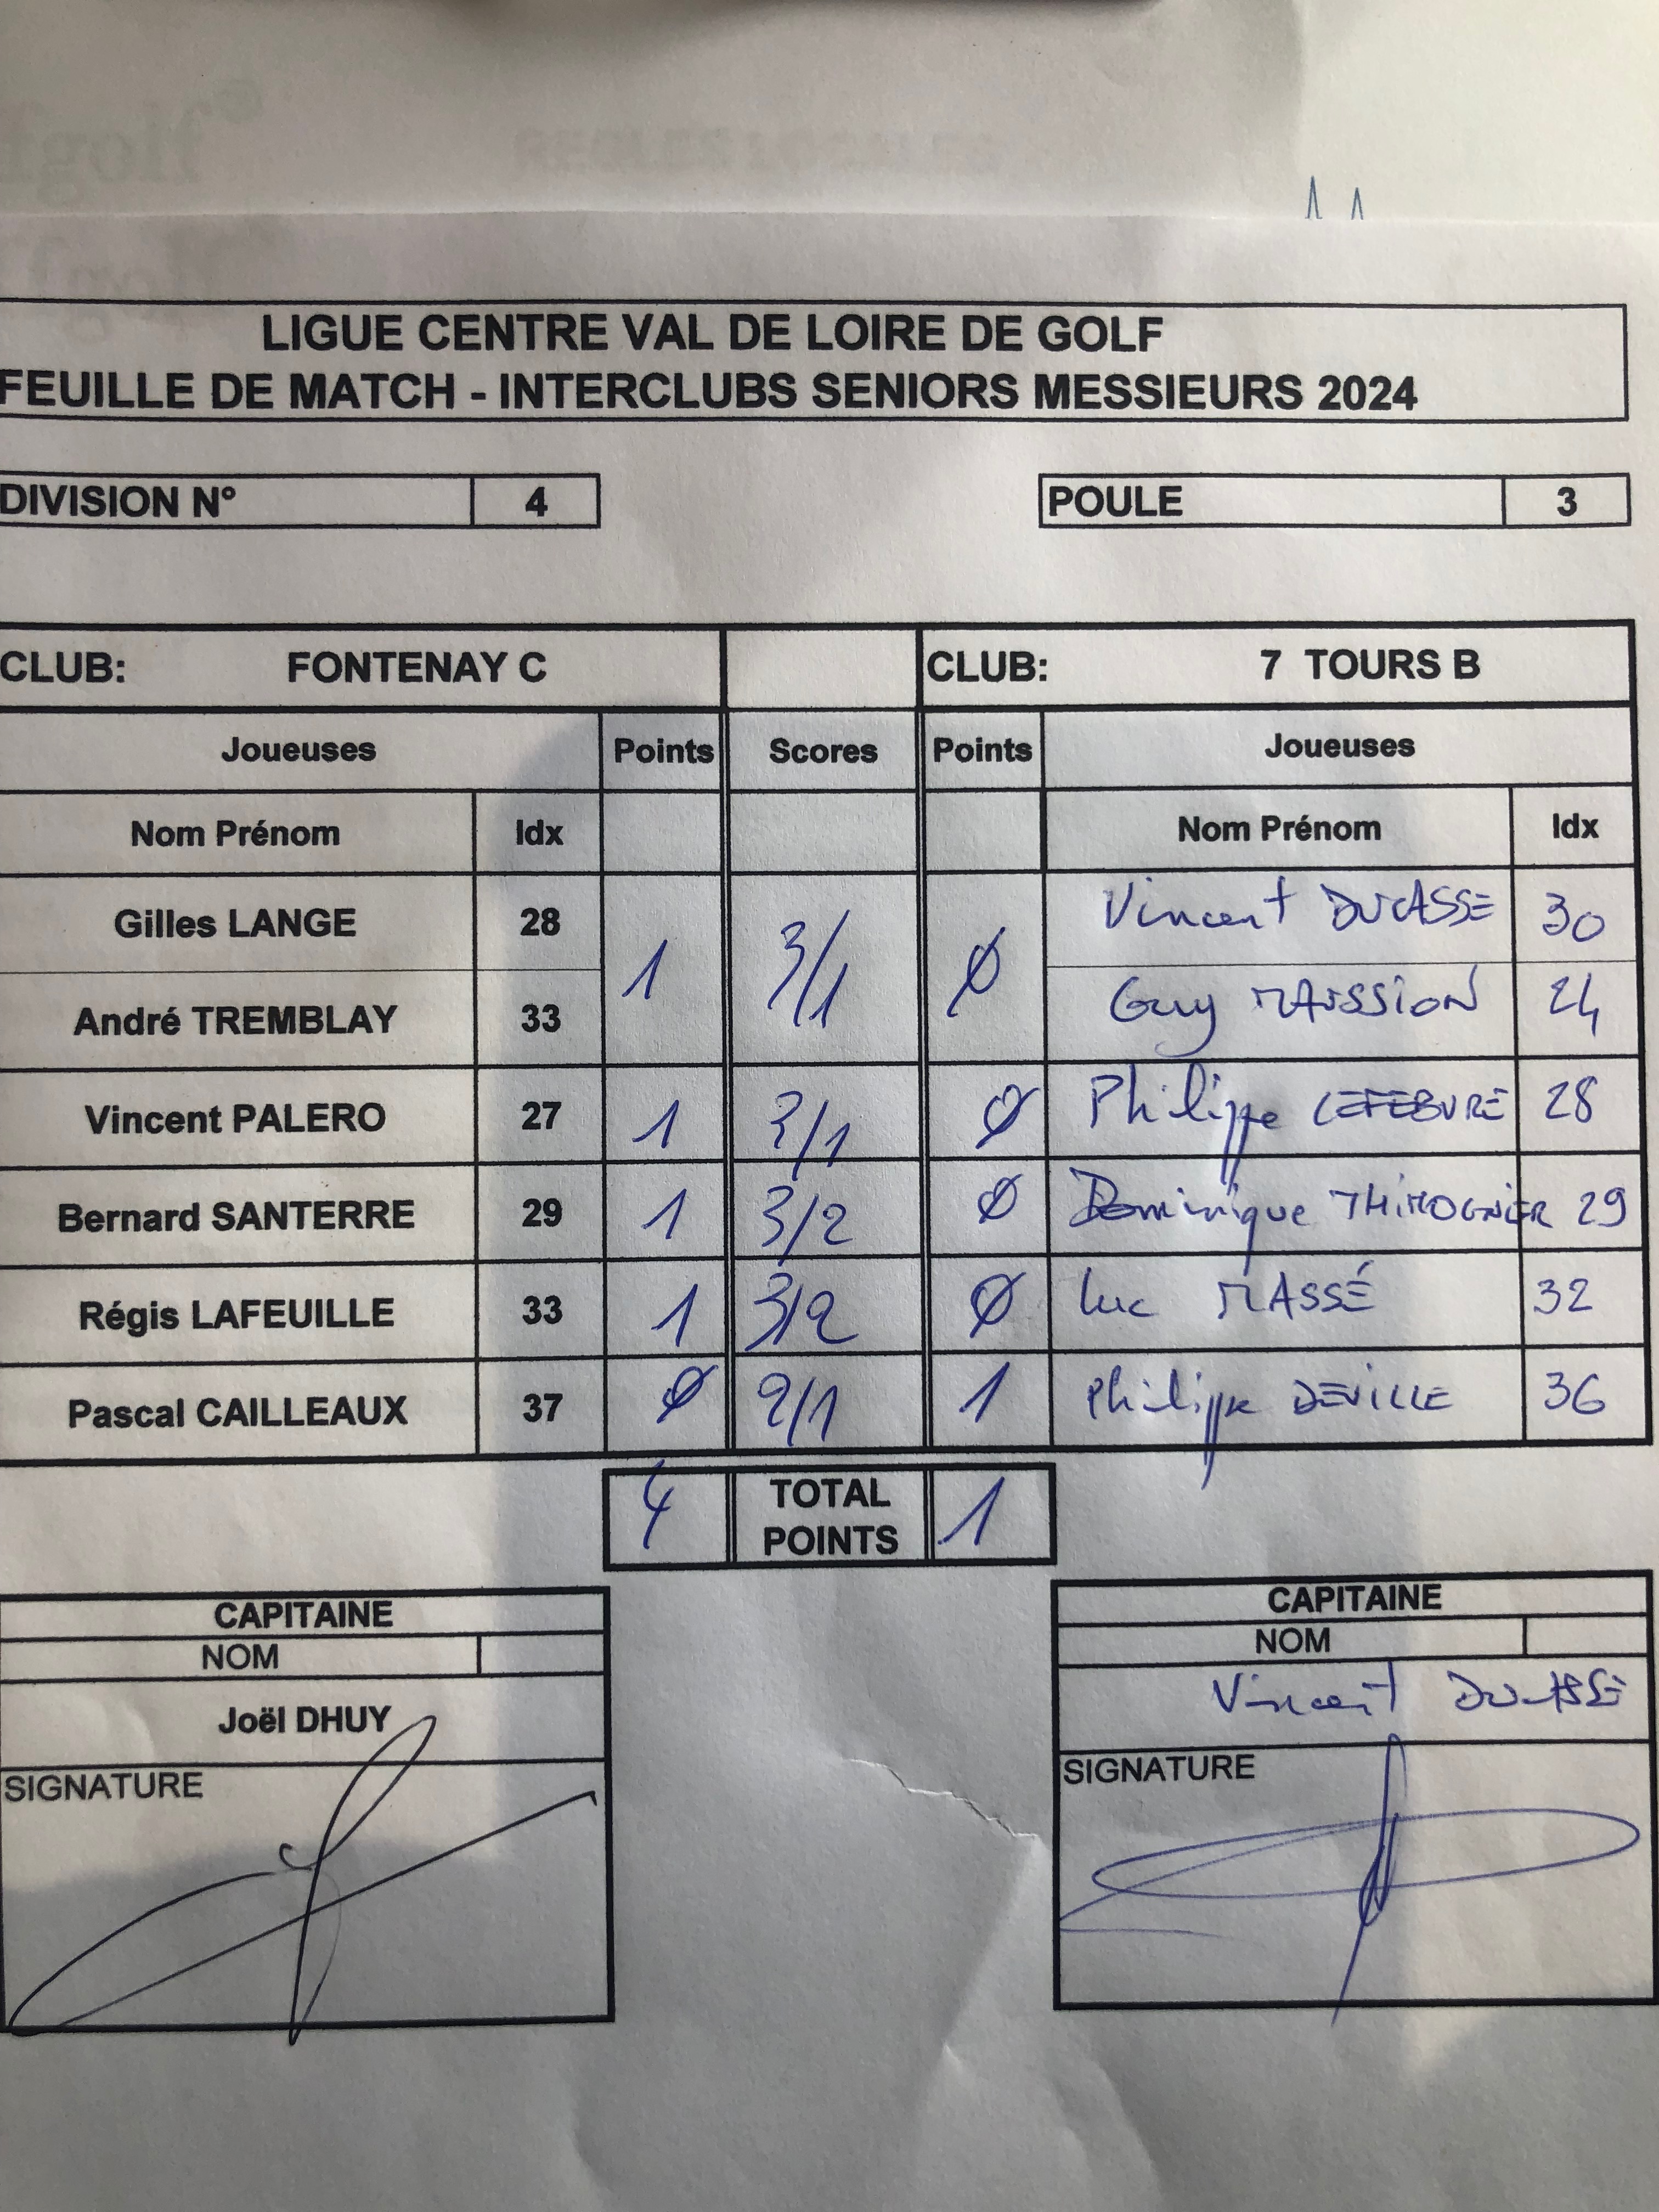 LIGUE CENTRE VAL DE LOIRE DE GOLF
FEUILLE DE MATCH - INTERCLUBS SENIORS MESSIEURS 2024
DIVISION N° 4 POULE 3
CLUB: FONTENAY C CLUB: 7 TOURS B
Joueuses Points Scores Points Joueuses
Nom Prénom Idx Nom Prénom Idx
Gilles LANGE 28 Vincent DUCASSE 30
1 3/1 0
André TREMBLAY 33 Guy MAISSION 24
Vincent PALERO 27 1 2/1 0 Philippe LEFEBVRE 28
Bernard SANTERRE 29 1 3/2 0 Dominique THIROGNIER 29
Régis LAFEUILLE 33 1 3/2 0 Luc MASSÉ 32
Pascal CAILLEAUX 37 0 2/1 1 Philippe DEVILLE 36
4 TOTAL POINTS 1
CAPITAINE CAPITAINE
NOM NOM
Joël DHUY Vincent DUCASSE
SIGNATURE SIGNATURE